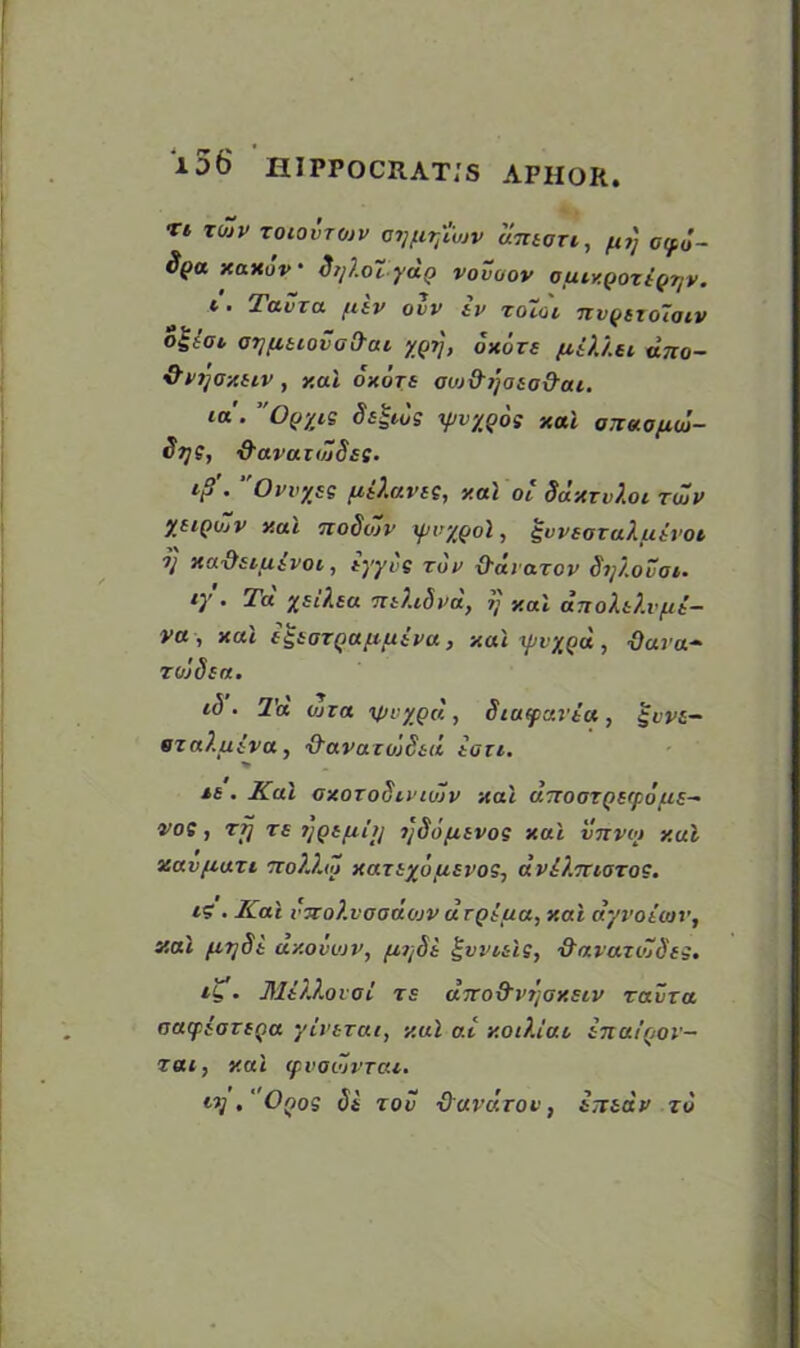 156 HIPPOCRAT:S APHOR.
τι τῶν τοιούτων σημηΐων ἄπεστι, μὴ σφό-
δρα κακόν· δηλοῖ γὰρ νοῦσον σμικροτέρην.
ι΄. Ταῦτα μὲν οὖν ἐν τοῖσι πυρετοῖσιν
ὀξέσι σημειοῦσθαι χρὴ, ὁκότε μέλλει ἀπο-
θνήσκειν, καὶ ὁκότε σωθήσεσθαι.
ια΄. Ὄρχις δεξιὸς ψυχρὸς καὶ σπασμώ-
δης, θανατῶδες.
ιβ΄. Ὄνυχες μέλανες, καὶ οἱ δάκτυλοι τῶν
χειρῶν καὶ ποδῶν ψυχροὶ, ξυνεσταλμένοι
ἢ καθειμένοι, ἐγγὺς τὸν θάνατον δηλοῦσι.
ιγ΄. Τὰ χείλεα πελιδνὰ, ἢ καὶ ἀπολελυμέ-
να, καὶ ἐξεστραμμένα, καὶ ψυχρὰ, θανα-
τώδεα.
ιδ΄. Τὰ ὦτα ψυχρὰ, διαφανέα, ξυνε-
σταλμένα, θανατώδεά ἐστι.
ιε΄. Καὶ σκοτοδινιῶν καὶ ἀποστρεφόμε-
νος, τῇ τε ἠρεμίῃ ἡδόμενος καὶ ὕπνῳ καὶ
καύματι πολλῷ κατεχόμενος, ἀνέλπιστος.
ις΄. Καὶ ὑπολυσσάων ἀτρέμα, καὶ ἀγνοέων,
καὶ μηδὲ ἀκούων, μηδὲ ξυνιεὶς, θανατῶδες.
ιζ΄. Μέλλουσί τε ἀποθνήσκειν ταῦτα
σαφέστερα γίνεται, καὶ αἱ κοιλίαι ἐπαίρον-
ται, καὶ φυσῶνται.
ιη΄. Ὅρος δὲ τοῦ θανάτου, ἐπεὰν τὸ